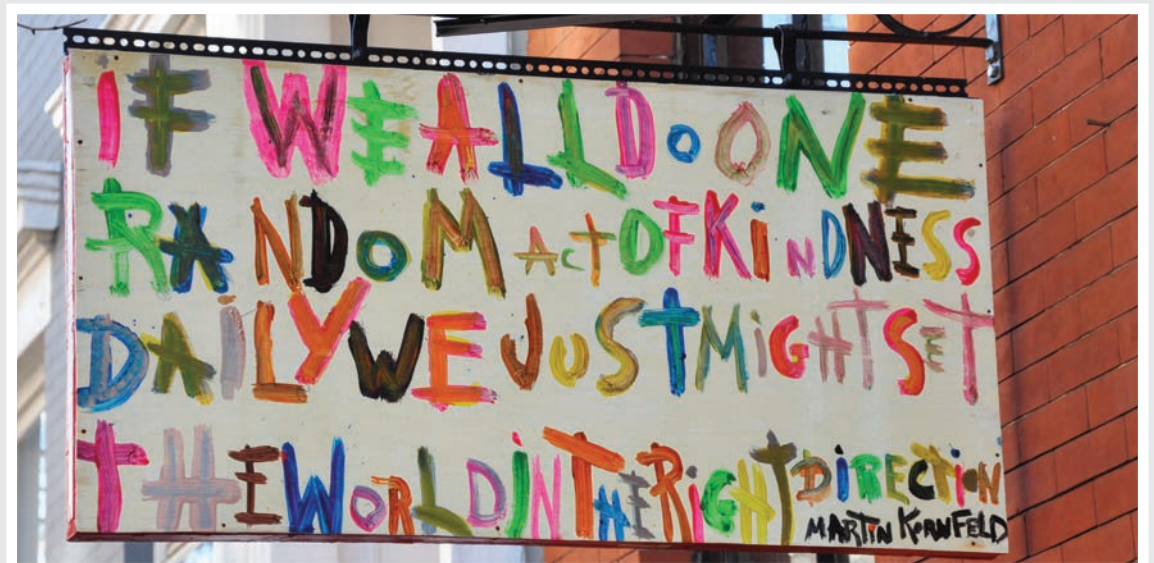 IF WE ALL DO ONE
RANDOM ACT OF KiNDNESS
DAILY WE JUST MiGHT SET
THE WORLD IN THE RiGHT DiRECTiON
MARTiN KORNFELD